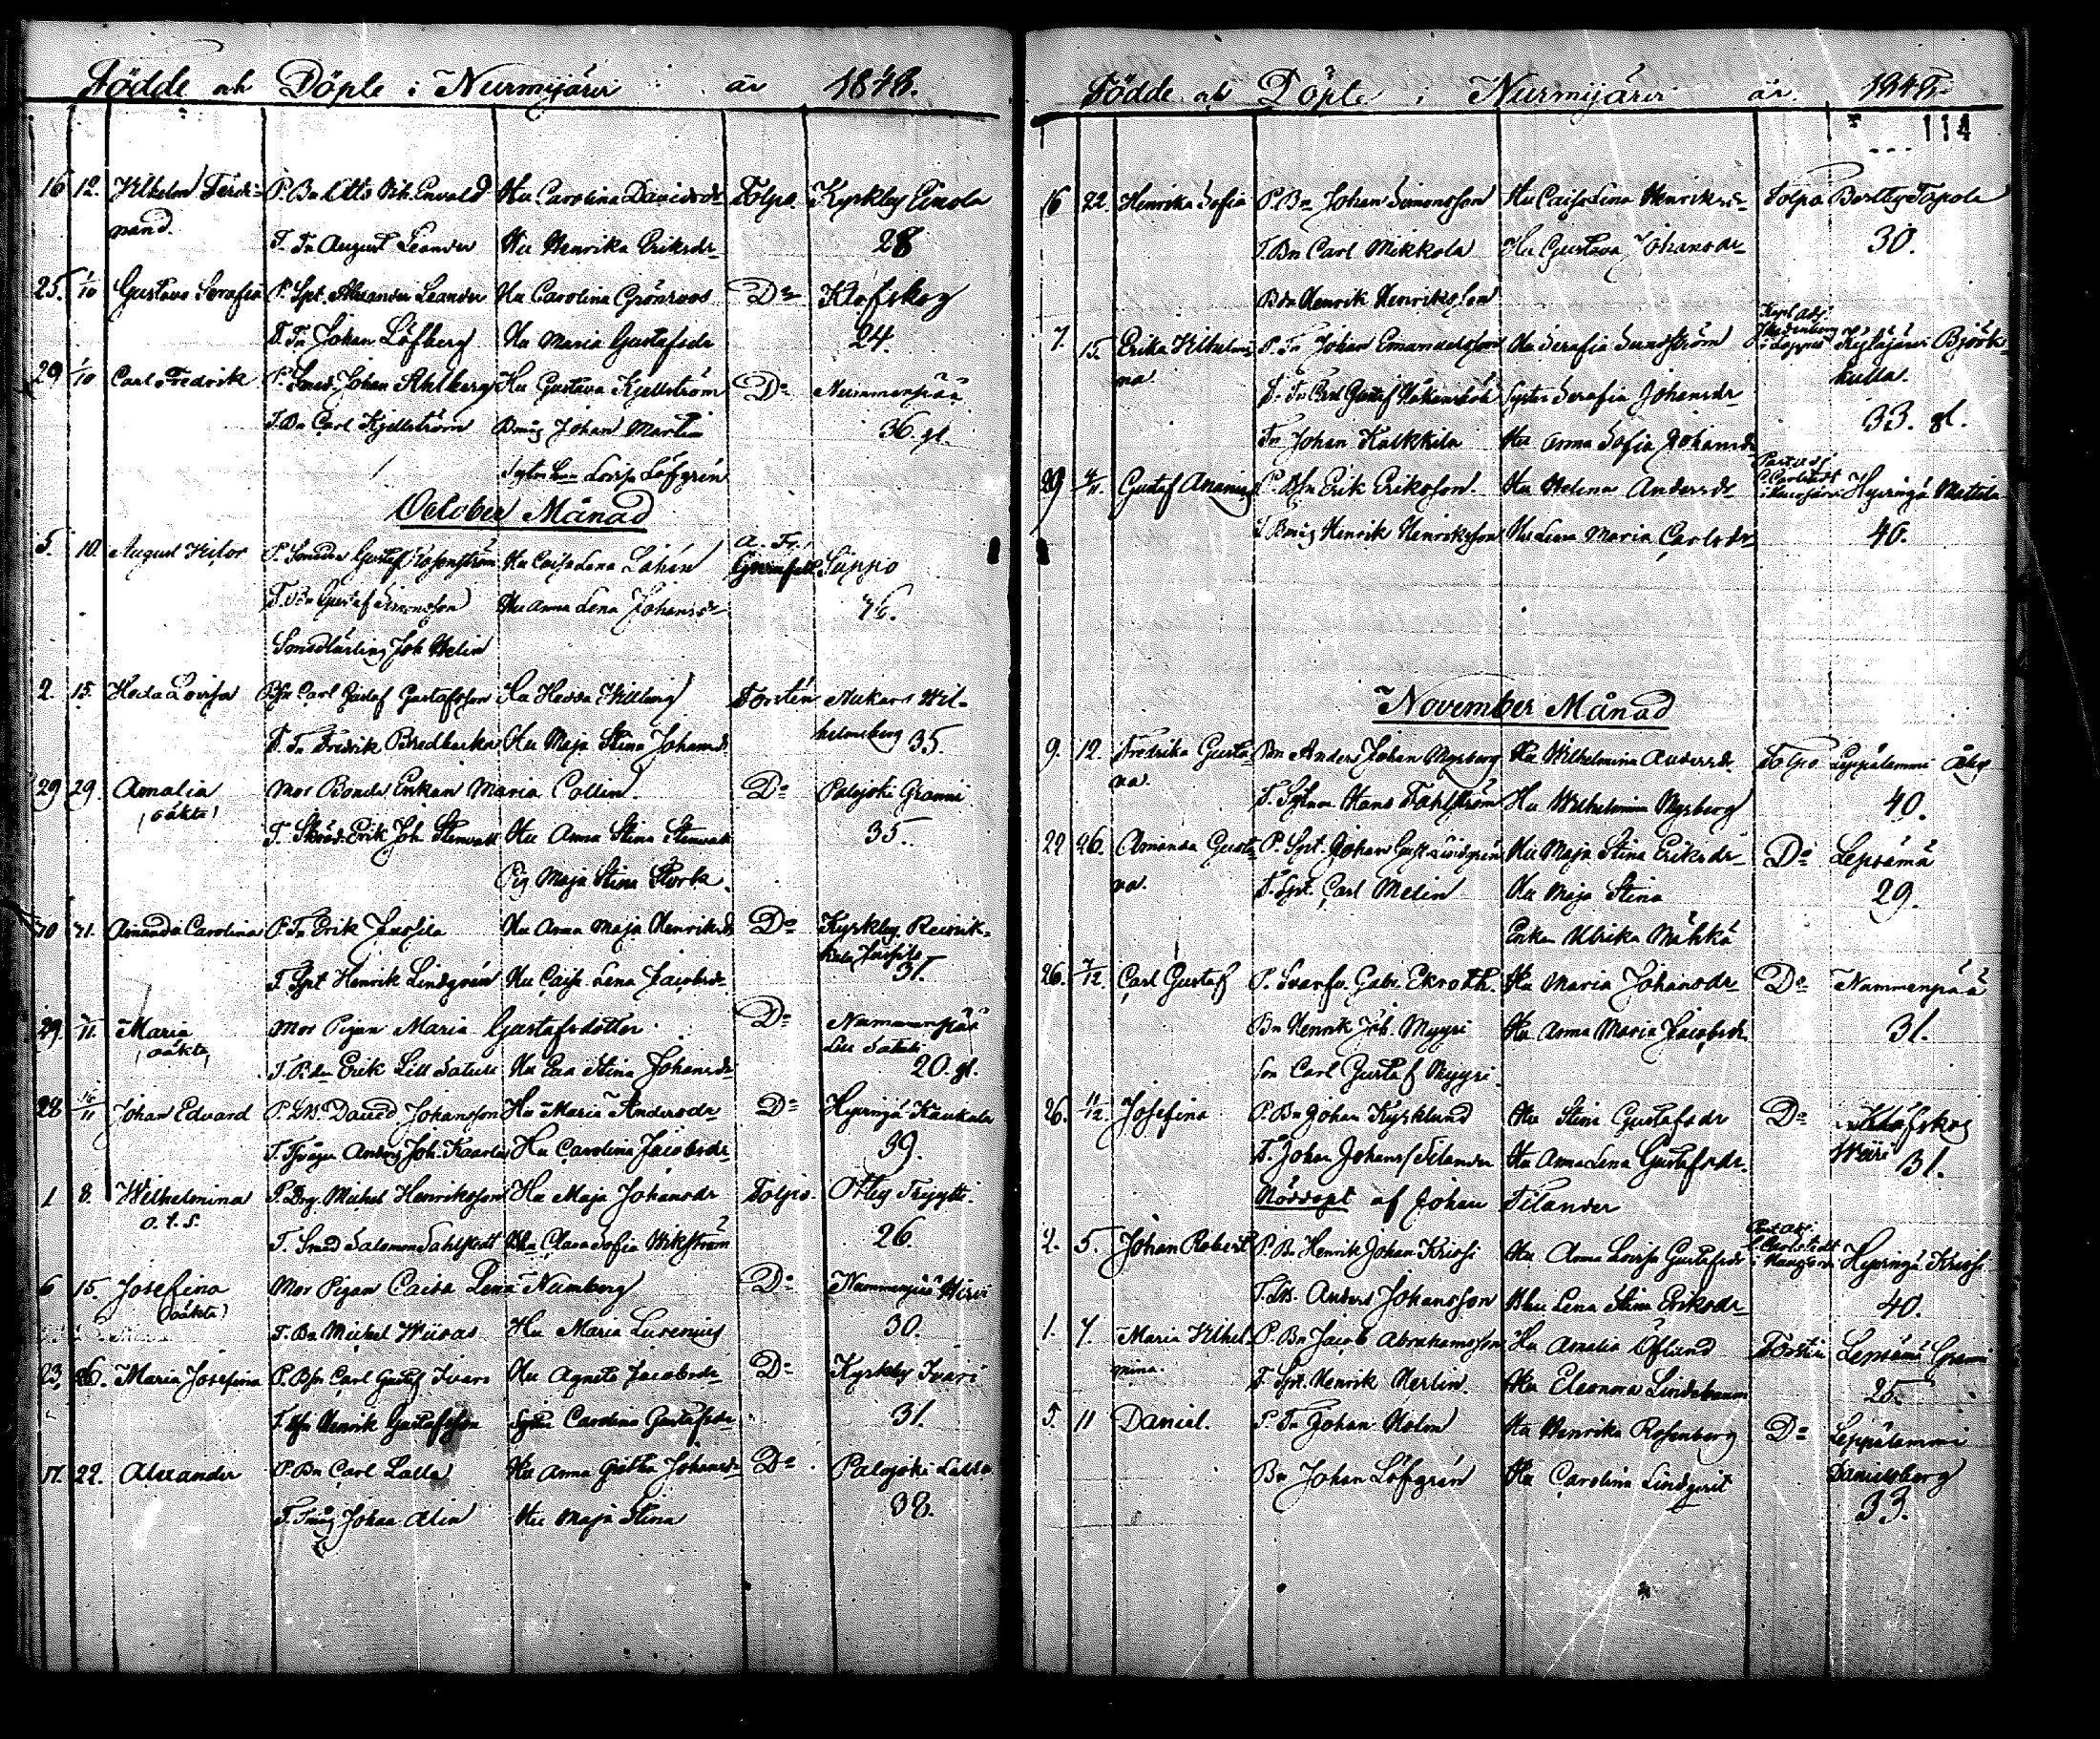 Födde och Döpte i Nurmijärvi år 1848.
16 12. Vilhelm Ferdi- P. Bn Otto Vilh. Envald Hu Carolina Davidsdr Tolpo. Kyrkby Einola
nand. T. Tn August Leander Hu Henrika Eriksdr 28
25. 1/10 Gustava Serafia P. Spt. Alexander Leander Hu Carolina Grönroos Do Klöfskog
T. Tn Johan Löfberg Hu Maria Gustafsdr 24.
29 1/10 Carl Fredrik P. Smed. Johan Ahlberg Hu Gustava Kjellström Do Nummenpää
T. Bn Carl Kjellström Bmåg Johan Martin 36. gl
Lovisa Löfgrén
October Månad
5. 10. August Victor P. Gustaf Rosenström Hu Caisa Lena Lahán A. Fr. Suppo
T. Bn Gustaf Simonsson Hu Anna Lena Johansdr 46.
Joh Welin
2. 15. Heda Lovisa Bsn Carl Gustaf Gustafsson Hu Hedda Willberg Forstén Mukari Wil-
T. Tn Fredrik Bredbacka Hu Maja Stina Johansdr helmsberg 35.
29 29. Amalia Mor Bonde Enkan Maria Collin Do Palojoki Granni
oäkta T. Skräd. Erik Joh. Stenvall Hu Anna Stina Stenvall 35.
Pig Maja Stina Storba
30 31. Amanda Carolina P. Tn Erik Jussila Hu Anna Maja Henriksdr Do Kyrkby Reinik-
kala Jussila
T. Spt Henrik Lindgrén Hu Caisa Lena Jacobsdr 31.
29. 5/11 Maria Mor Pigan Maria Gustafsdotter Do Nummenpää
oäkta Lill Satuli
T. Bdn Erik Lill Satuli Hu Eva Stina Johansdr 20. gl.
28 16/11 Johan Edvard P. Lbd. David Johansson Hu Maria Andersdr Do Hyvingä Kaukala
T. Tjräger Anders Joh. Kaarla Hu Carolina Jacobsdr 39.
1 8. Wilhelmina P. Drg. Michel Henriksson Hu Maja Johansdr Tolpo. Otby Trygytti
o. t. s.
T. Smed Salomon Sahlstedt Hu Clara Sofia Wikström 26.
6 15. Josefina Mor Pigan Caisa Lena Numberg Do Nummenpää Wirri
oäkta
T. Bn Michel Wiiras Hu Maria Lurenius 30.
23. 26. Maria Josefina P. Bsn Carl Gustaf Ivari Hu Agneta Jacobsdr Do Kyrkby Ivari
T. Bsn Henrik Gustafsson Syster Carolina Gustafsdr 31.
17. 22. Alexander P. Bn Carl Lalla Hu Anna Greta Johansdr Do Palojoki Lalla
T. Tmåg Johan Alin Hu Maja Stina 38.
Födde och Döpte i Nurmijärvi år 1848.
114
16 22. Henrika Sofia P. Bn Johan Simonsson Hu Caisa Lina Henriksdr Tolpo Perttby Tapola
T. Bn Carl Mikkola Hu Gustava Johansdr 30.
Bdn Henrik Henriksson
7. 15. Erika Vilhelmi- P. Tn Johan Emanuelsson Hu Serafia Sundström Kapl. Adj. i Loppis Kytäjärvi Björk-
na. T. Tn Carl Gustaf Syster Serafia Johansdr kulla.
Tn Johan Kalkkila Hu Anna Sofia Johansdr 33. gl.
29 4/11. Gustaf Ananias P. Bsn Erik Eriksson Hu Helena Andersdr Past. adj. C. Carlstedt i Hausjärvi Hyvingä Mattila
T. Bmåg Henrik Henriksson Hu Lena Maria Carlsdr 46.
November Månad
9. 12. Fredrika Gusta- Bn Anders Johan Nysberg Hu Wilhelmina Andersdr Tolpo Leppälammi
va. T. Sytn. Hans Fahlström Hu Wilhelmina Nysberg 40.
22 26. Amanda Gusta- P. Spt. Johan Gust. Lindgrén Hu Maja Stina Eriksdr Do Lepsämä
va. T. Spt. Carl Melin Hu Maja Stina 29.
Enkan Ulrika Mähkä
26. 7/12. Carl Gustaf P. Svarfv. Gabr. Ekroth. Hu Maria Johansdr Do Nummenpää
Bn Henrik Joh. Myyri Hu Anna Maria Jacobsdr 31.
Son Carl Gustaf Myyri
26. 11/12. Josefina P. Bn Johan Kyrklund Hu Stina Gustafsdr Do Klöfskog
T. Johan Johans Silander Hu Anna Lena Gustafsdr 31.
Nöddöpt af Johan Silander
2. 5. Johan Robert P. Bn Henrik Johan Kriosi Hu Anna Lovisa Gustafsdr Past. Adj. C. Carlstedt i Hausjärvi Hyvingä Kriosi
T. Lbd. Anders Johansson Hu Lena Stina Eriksdr 40.
1. 7. Maria Vilhel- P. Bn Jacob Abrahamsson Hu Amalia Öflund Forstén Lepsämä Granni
mina. T. Spt. Henrik Merlin. Hu Eleonora Lindebaum 25.
5. 11 Daniel. P. Tn Johan Holm Hu Henrika Rosenberg Do Leppälammi
Bn Johan Löfgrén Hu Carolina Lindqvist Danielsberg
33.